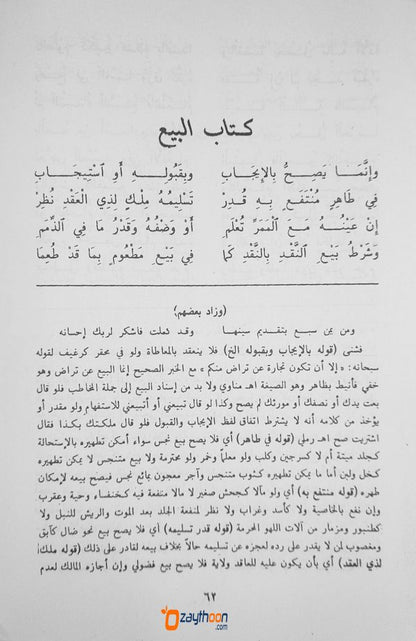 كتاب البيع
وَإِنَّمَا يَصِحُّ بِالإِيجَابِ وبِقَبُولِهِ أَوِ اسْتِيجَابِ
فِي طَاهِرٍ مُنْتَفَعٍ بِهِ قُدِرْ تَسْلِيمُهُ مِلْكٍ لِذِي الْعَقْدِ نُظِرْ
إِنْ عَيْنُهُ مَعَ الْمَمَرِّ تُعْلَمِ أَوْ وَصْفُهُ وَقَدْرُ مَا فِي الذِّمَمِ
وَشَرْطُ بَيْعِ النَّقْدِ بِالنَّقْدِ كَمَا فِي بَيْعِ مَطْعُومٍ بِمَا قَدْ طُعِمَا
(وزاد بعضهم)
ومن يمن سبع بتقديم سينها وقد شملت فاشكر لربك إحسانه
فشنى (قوله بالإيجاب وبقبوله الخ) فلا ينعقد بالمعاطاة ولو في محقر كرغيف لقوله
سبحانه: «إلا أن تكون تجارة عن تراض منكم» مع الخبر الصحيح إنما البيع عن تراض وهو
خفي فأنيط بظاهر وهو الصيغة اهـ مناوي ولا بد من إسناد البيع إلى جملة المخاطب فلو قال
بعت يدك أو نصفك أو مورثك لم يصح وكذا لو قال تبيعني أو أتبيعني للاستفهام ولو مقدر أو
يؤخذ من كلامه أنه لا يشترط اتفاق لفظ الإيجاب والقبول فلو قال ملكتك بكذا فقال
اشتريت صح اهـ رملي (قوله في طاهر) أي فلا يصح بيع نجس سواء أمكن تطهيره بالاستحالة
كجلد ميتة أم لا كسرجين وكلب ولو معلماً وخمر ولو محترمة ولا بيع متنجس لا يمكن تطهيره
كخل ولبن أما ما يمكن تطهيره كثوب متنجس وآجر معجون بمائع نجس فيصح بيعه لإمكان
طهره (قوله منتفع به) أي ولو مآلا كجحش صغير لا مالا منفعة فيه كخنفساء وحية وعقرب
وإن نفع بالخاصية ولا كأسد وغراب ولا نظر لمنفعة الجلد بعد الموت والريش للنبل ولا
كطنبور ومزمار من آلات اللهو المحرمة (قوله قدر تسليمه) أي فلا يصح بيع نحو ضال كآبق
ومغصوب لمن لا يقدر على رده لعجزه عن تسليمه حالاً بخلاف بيعه لقادر على ذلك (قوله ملك
لذي العقد) أي بأن يكون عليه للعاقد ولاية فلا يصح بيع فضولي وإن أجازه المالك لعدم
٦٢
Ozaythoon
.com